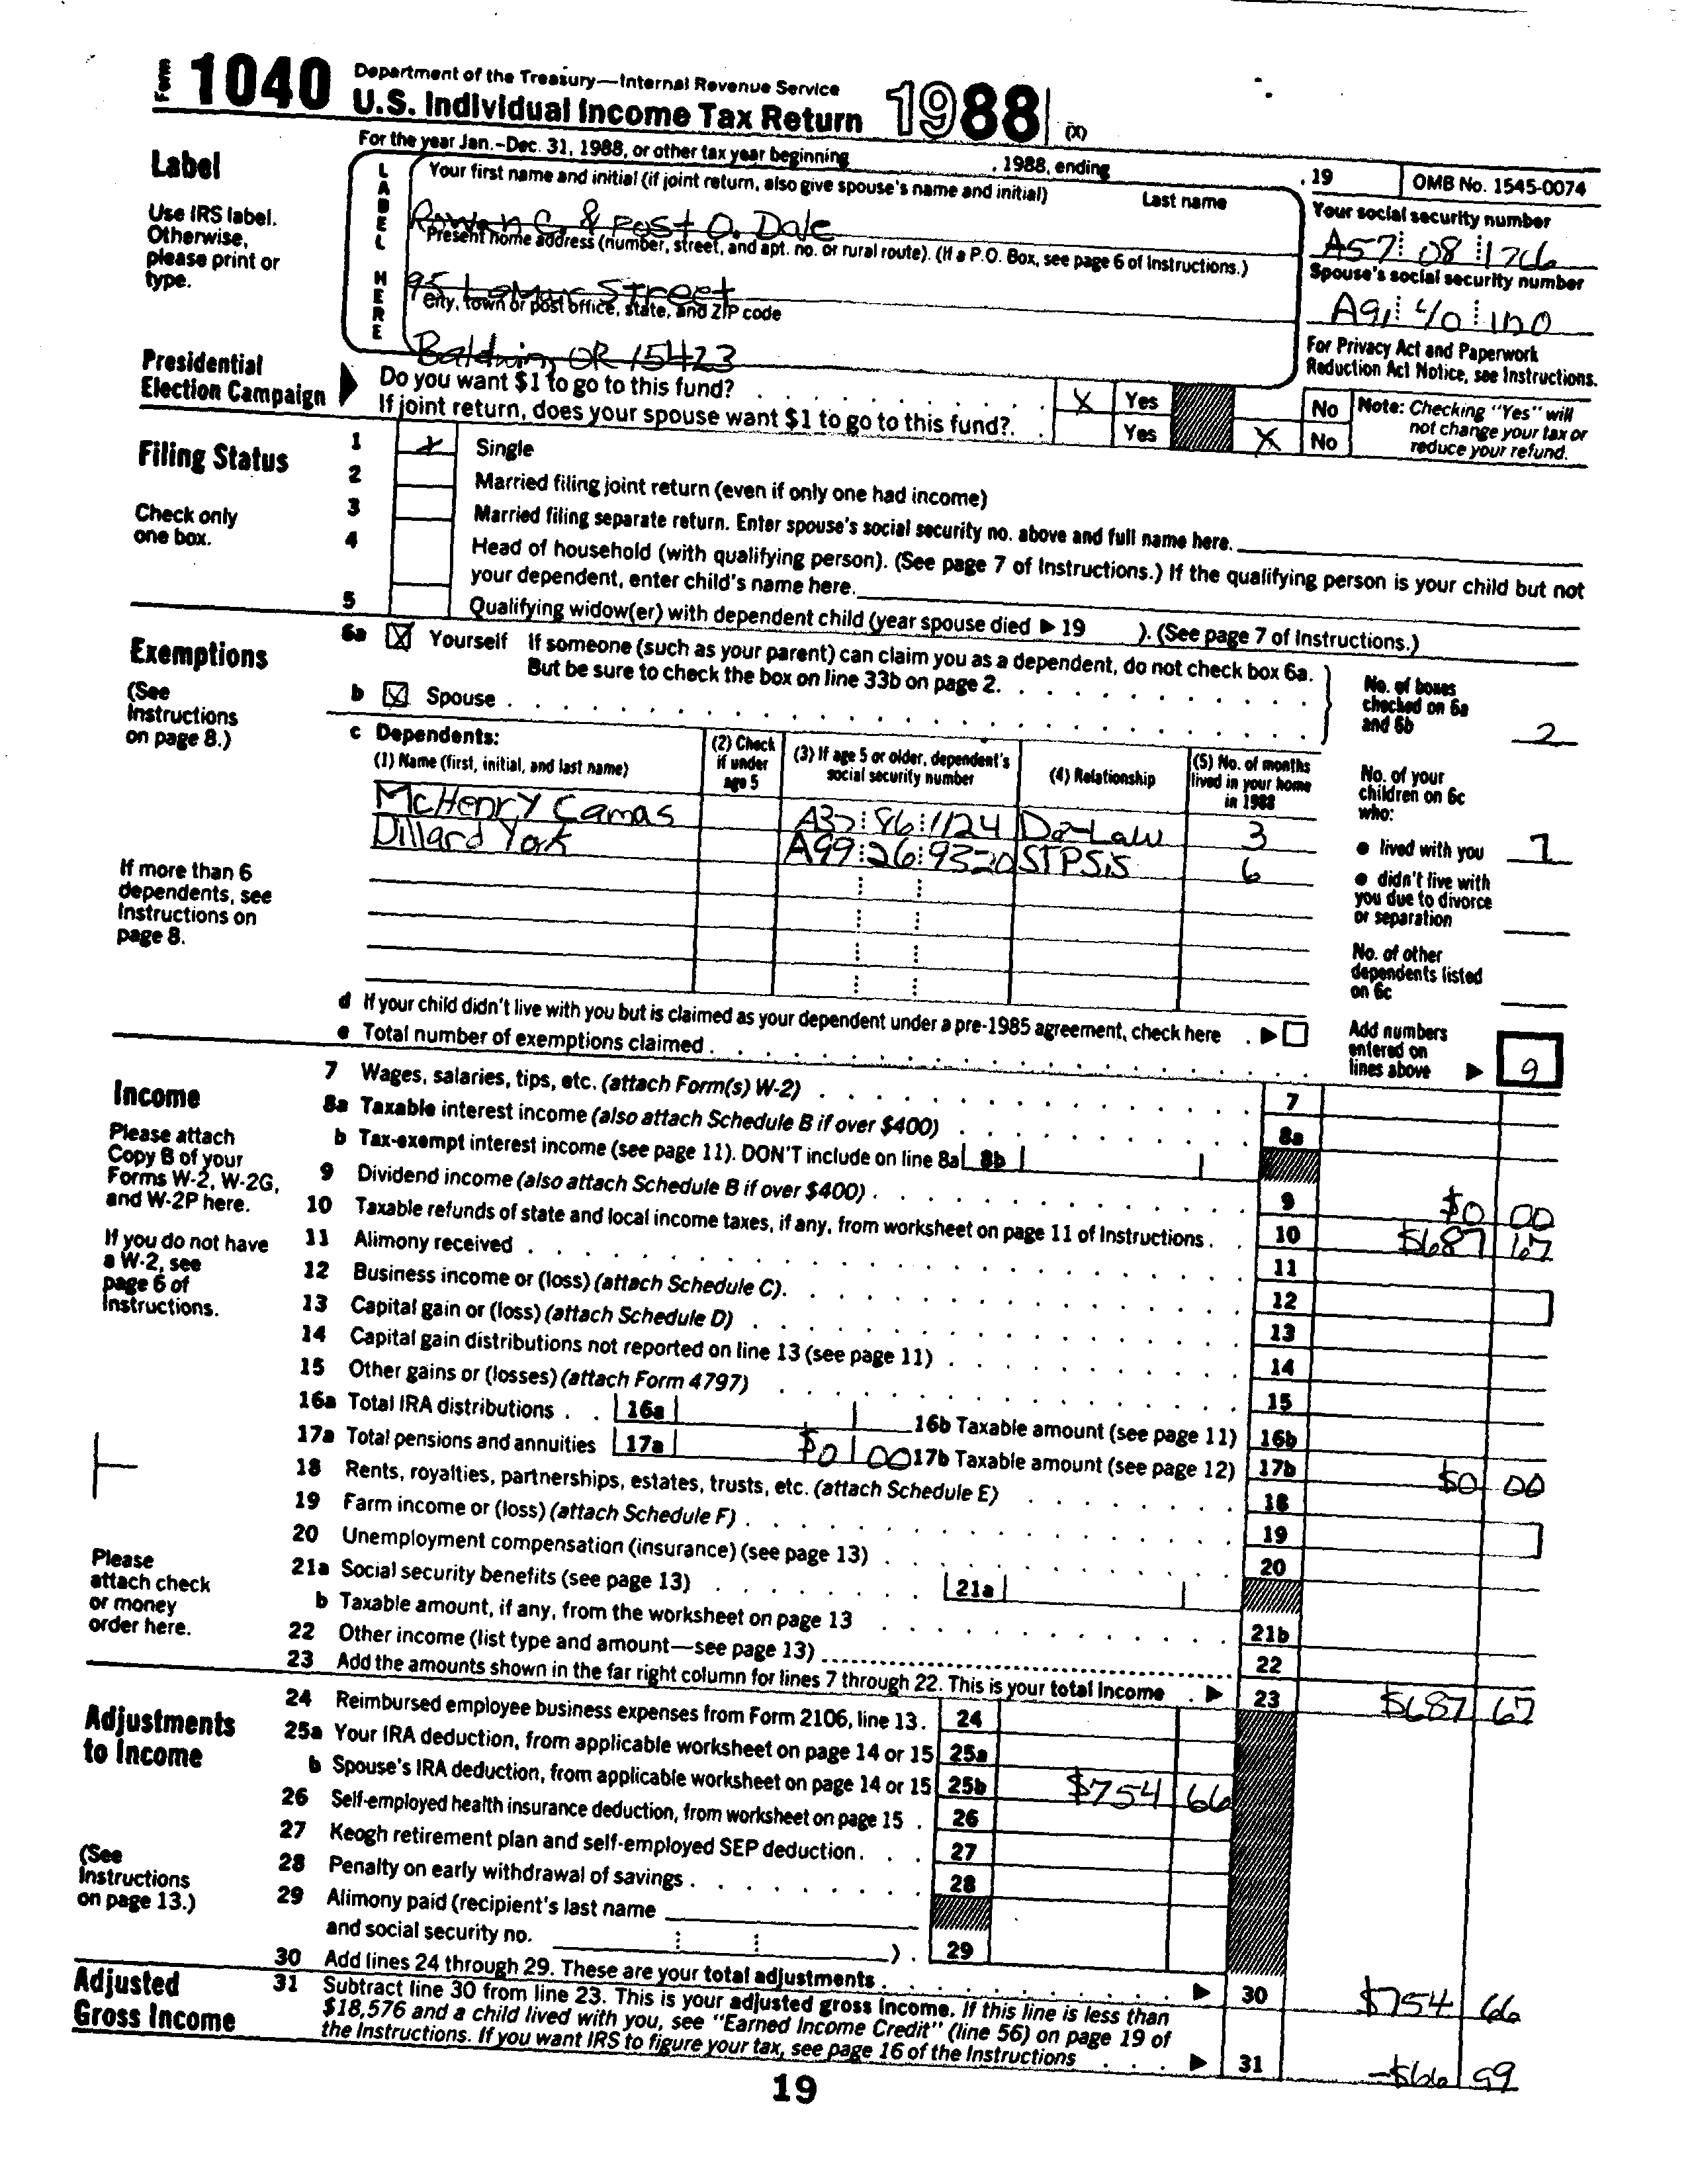 Form 1040 Department of the Treasury—Internal Revenue Service
U.S. Individual Income Tax Return 1988 (X)
For the year Jan.-Dec. 31, 1988, or other tax year beginning , 1988, ending , 19 OMB No. 1545-0074
Label
Use IRS label.
Otherwise,
please print or
type.
LABEL HERE
Your first name and initial (if joint return, also give spouse's name and initial) Last name
Rowan C. & Post O. Dale
Your social security number
A57 08 1766
Present home address (number, street, and apt. no. or rural route). (If a P.O. Box, see page 6 of Instructions.)
95 Street
Spouse's social security number
A91 40 1120
City, town or post office, state, and ZIP code
Baldwin, OR 15423
For Privacy Act and Paperwork
Reduction Act Notice, see Instructions.
Presidential
Election Campaign
Do you want $1 to go to this fund? X Yes No
If joint return, does your spouse want $1 to go to this fund? Yes X No
Note: Checking "Yes" will
not change your tax or
reduce your refund.
Filing Status
Check only
one box.
1 X Single
2 Married filing joint return (even if only one had income)
3 Married filing separate return. Enter spouse's social security no. above and full name here.
4 Head of household (with qualifying person). (See page 7 of Instructions.) If the qualifying person is your child but not
your dependent, enter child's name here.
5 Qualifying widow(er) with dependent child (year spouse died ▶ 19 ). (See page 7 of Instructions.)
Exemptions
(See
Instructions
on page 8.)
6a X Yourself If someone (such as your parent) can claim you as a dependent, do not check box 6a.
But be sure to check the box on line 33b on page 2.
b X Spouse
No. of boxes
checked on 6a
and 6b 2
c Dependents:
(1) Name (first, initial, and last name)
(2) Check
if under
age 5
(3) If age 5 or older, dependent's
social security number
(4) Relationship
(5) No. of months
lived in your home
in 1988
McHenry Camas A37 86 1124 Da-Law 3
Dillard York A99 26 9320 STPSis 6
If more than 6
dependents, see
Instructions on
page 8.
No. of your
children on 6c
who:
• lived with you 7
• didn't live with
you due to divorce
or separation
No. of other
dependents listed
on 6c
d If your child didn't live with you but is claimed as your dependent under a pre-1985 agreement, check here ▶
e Total number of exemptions claimed
Add numbers
entered on
lines above ▶ 9
Income
Please attach
Copy B of your
Forms W-2, W-2G,
and W-2P here.
If you do not have
a W-2, see
page 6 of
Instructions.
Please
attach check
or money
order here.
7 Wages, salaries, tips, etc. (attach Form(s) W-2) 7
8a Taxable interest income (also attach Schedule B if over $400) 8a
b Tax-exempt interest income (see page 11). DON'T include on line 8a 8b
9 Dividend income (also attach Schedule B if over $400) 9 $0 00
10 Taxable refunds of state and local income taxes, if any, from worksheet on page 11 of Instructions 10 $687 67
11 Alimony received 11
12 Business income or (loss) (attach Schedule C) 12
13 Capital gain or (loss) (attach Schedule D) 13
14 Capital gain distributions not reported on line 13 (see page 11) 14
15 Other gains or (losses) (attach Form 4797) 15
16a Total IRA distributions 16a 16b Taxable amount (see page 11) 16b
17a Total pensions and annuities 17a $0 00 17b Taxable amount (see page 12) 17b $0 00
18 Rents, royalties, partnerships, estates, trusts, etc. (attach Schedule E) 18
19 Farm income or (loss) (attach Schedule F) 19
20 Unemployment compensation (insurance) (see page 13) 20
21a Social security benefits (see page 13) 21a
b Taxable amount, if any, from the worksheet on page 13 21b
22 Other income (list type and amount—see page 13) 22
23 Add the amounts shown in the far right column for lines 7 through 22. This is your total income ▶ 23 $687 67
Adjustments
to Income
(See
Instructions
on page 13.)
24 Reimbursed employee business expenses from Form 2106, line 13 24
25a Your IRA deduction, from applicable worksheet on page 14 or 15 25a
b Spouse's IRA deduction, from applicable worksheet on page 14 or 15 25b $754 66
26 Self-employed health insurance deduction, from worksheet on page 15 26
27 Keogh retirement plan and self-employed SEP deduction 27
28 Penalty on early withdrawal of savings 28
29 Alimony paid (recipient's last name
and social security no. ) 29
30 Add lines 24 through 29. These are your total adjustments ▶ 30 $754 66
Adjusted
Gross Income
31 Subtract line 30 from line 23. This is your adjusted gross income. If this line is less than
$18,576 and a child lived with you, see "Earned Income Credit" (line 56) on page 19 of
the Instructions. If you want IRS to figure your tax, see page 16 of the Instructions ▶ 31 -$66 99
19